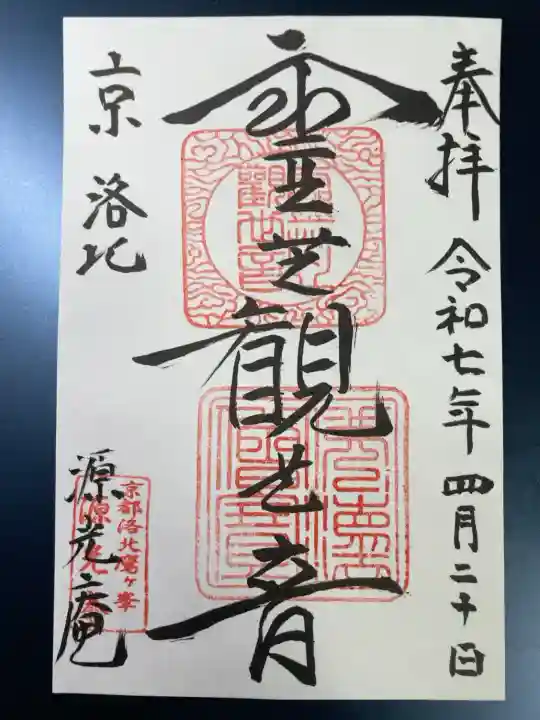 奉拝 令和七年四月二十日
霊芝観世音
京 洛北
源光庵
京都洛北鷹ヶ峯
源光庵